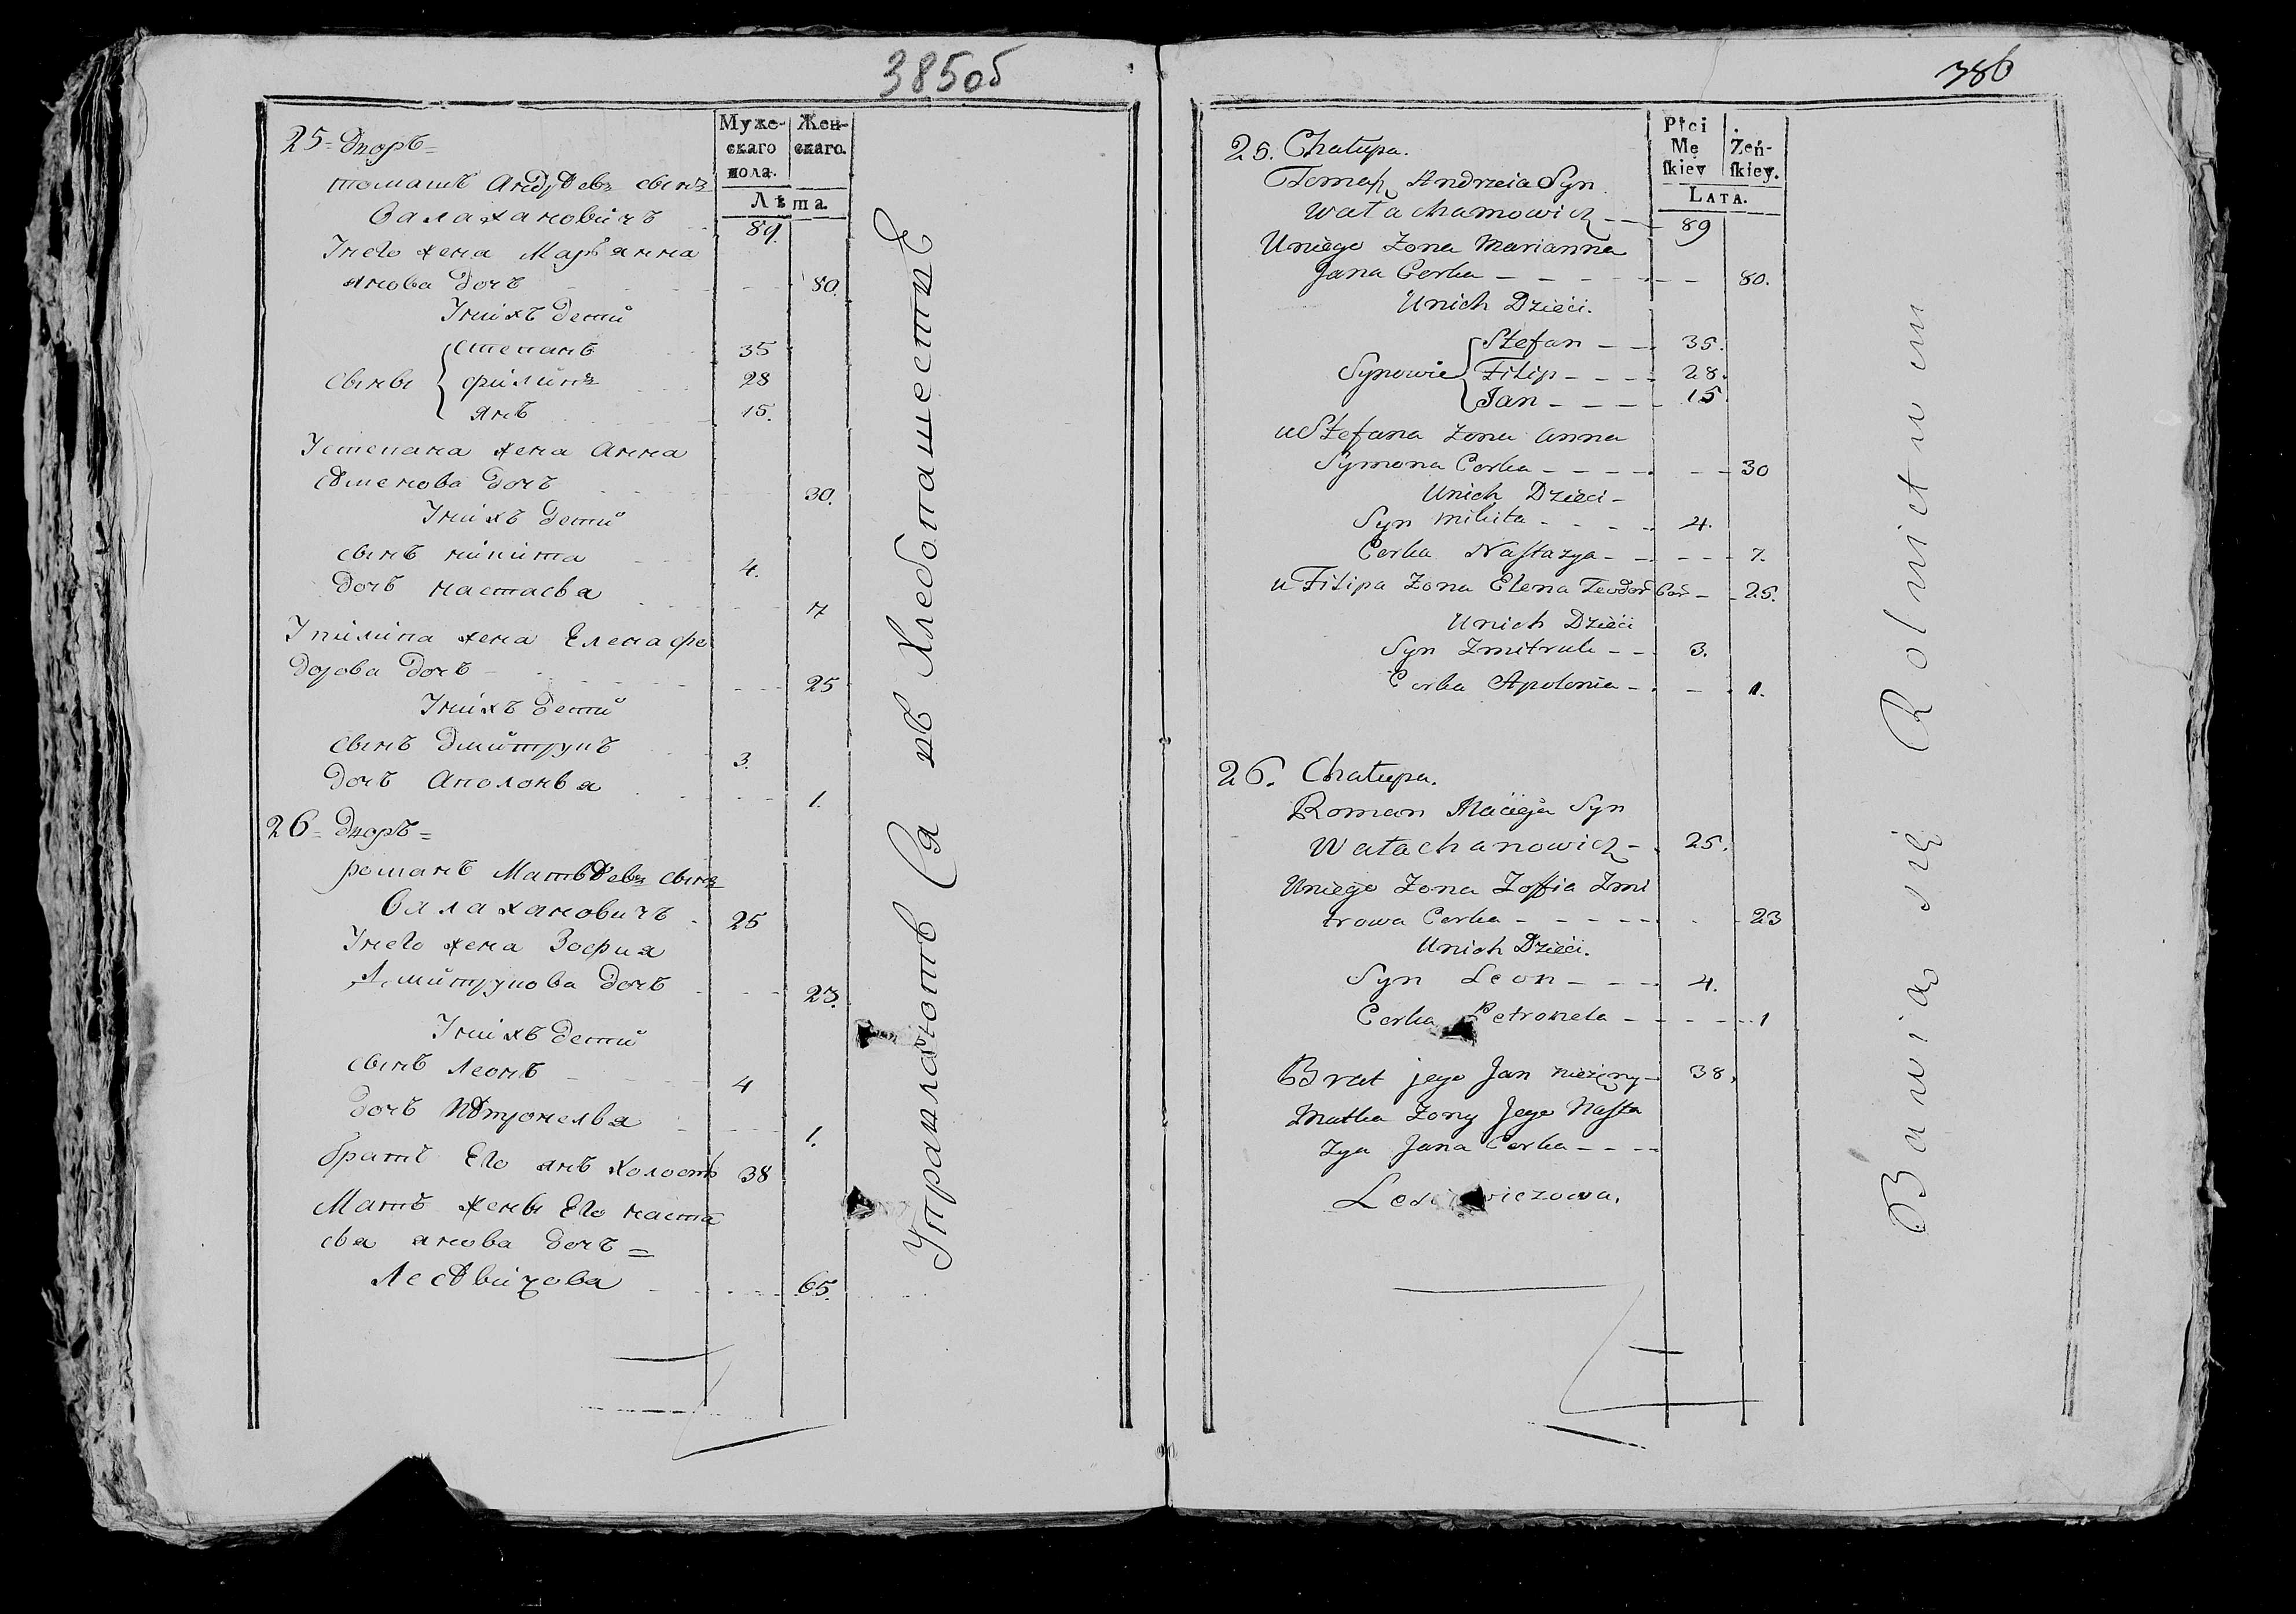 385об
25= Дворъ=
Муже-
скаго
пола.
Жен-
скаго.
Лѣта.
томашъ Андрѣевъ сынъ
Валахановичъ 89.
Унего жена Марьянна
янова дочъ 80.
Унихъ дети
сыны
степанъ 35
филипъ 28
янъ 15.
Устепана жена Анна
сѣменова дочъ 30.
Унихъ дети
сынъ микита 4.
дочъ настасья 7
Упилипа жена Елена фе
дорова дочъ 25
Унихъ дети
сынъ дмитрукъ 3.
дочъ Аполонья 1.
26= Дворъ=
романъ Матвѣевъ сынъ
Валахановичъ 25
Унего жена Зофия
Дмитрукова дочъ 23.
Унихъ дети
сынъ Леонъ 4
дочъ Пѣтронелья 1.
братъ Его янъ холостъ 38
Мать жены Его наста
сья янова дочъ =
Лесѣвичова 65.
Упражляютъ Ся въ Хлебопашестве
386
25. Chałupa.
Płci
Mę
skiey
Żeń-
skiey.
LATA.
Tomasz Andrzeia Syn
Wałachanowicz - - 89
Uniego Zona Marianna
Jana Corka - - - - - - 80.
Unich Dzieci.
Synowie
Stefan - - 35.
Filip - - - - 28.
Jan - - - - 15
u Stefana zona Anna
Symona Corka - - - - - - 30
Unich Dzieci -
Syn Mikita - - - - 4.
Corka Nastazya - - - - - 7.
u Filipa Zona Elena Teodor Cor - - 25.
Unich Dzieci
Syn Zmitruk - - 3.
Corka Apolonia - - - 1.
26. Chałupa.
Roman Macieja Syn
Wałachanowicz - 25.
Uniego Zona Zoffia Zmi
trowa Corka - - - - - - 23
Unich Dzieci.
Syn Leon - - - 4.
Corka Petronela - - - - - 1
Brat jego Jan nieżęny - 38.
Matka Zony Jego Nasta
zya Jana Corka - - - -
Bawią się Rolnictwem